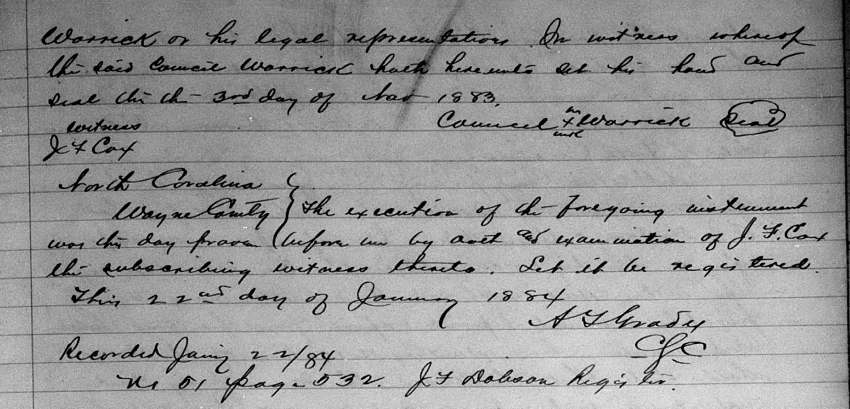 Warrick or his legal representatives. In witness whereof
the said Council Warrick hath hereunto set his hand and
seal this the 3rd day of Nov 1883.
witness Council his X mark Warrick seal
J F Cox
North Carolina
Wayne County } The execution of the foregoing instrument
was this day proven before me by oath and examination of J. F. Cox
the subscribing witness thereto. Let it be registered.
This 22nd day of January 1884
A F Grady
CSC
Recorded Jany 22/84
No 51 page 532. J F Dobson Register.